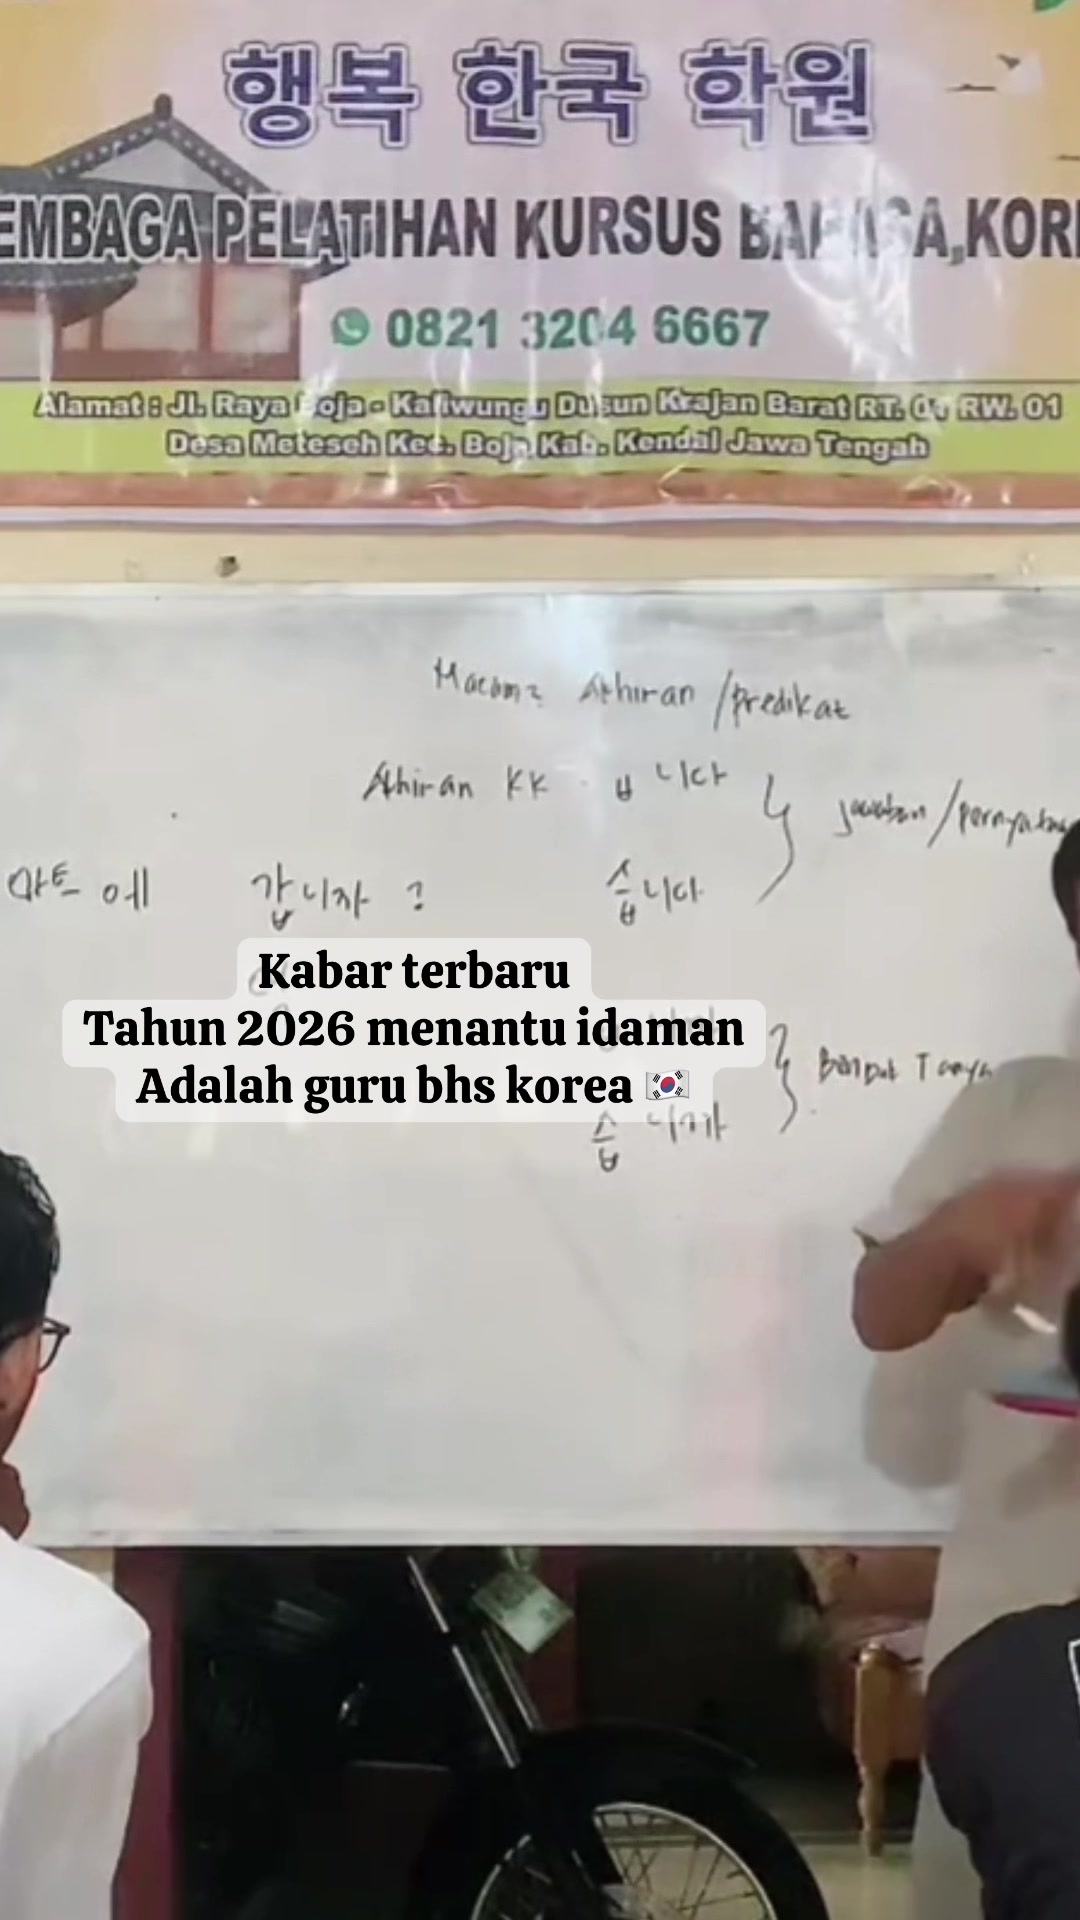 행복 한국 학원
EMBAGA PELATIHAN KURSUS BAHASA KOR
0821 3204 6667
Alamat : Jl. Raya Boja - Kaliwungu Dusun Krajan Barat RT. RW. 01
Desa Meteseh Kec. Boja Kab. Kendal Jawa Tengah
Macam2 Akhiran / predikat
Akhiran KK ㅂ니다
jawaban / pernyataan
마트 에 갑니까 ? 습니다
Kabar terbaru
Tahun 2026 menantu idaman
Adalah guru bhs korea 🇰🇷
Tanya
습 니까